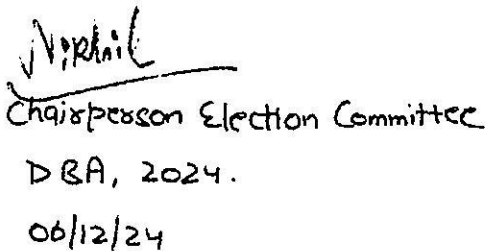 Nikhil
Chairperson Election Committee
DBA, 2024.
06/12/24